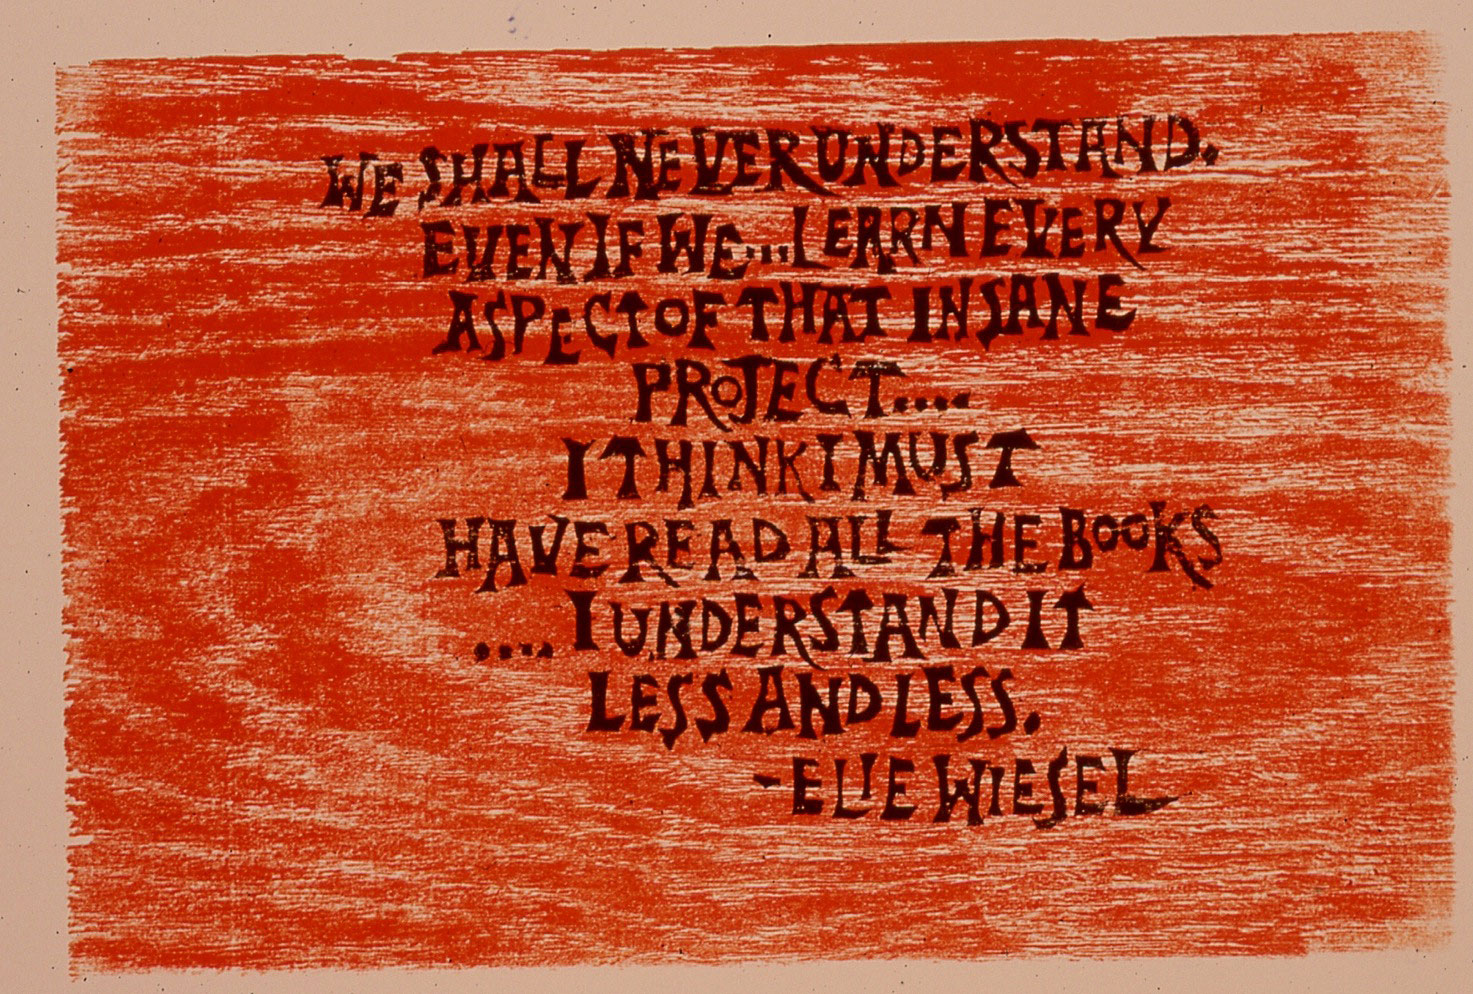 WE SHALL NEVER UNDERSTAND.
EVEN IF WE...LEARN EVERY
ASPECT OF THAT INSANE
PROJECT....
I THINK I MUST
HAVE READ ALL THE BOOKS
....I UNDERSTAND IT
LESS AND LESS.
-ELIE WIESEL